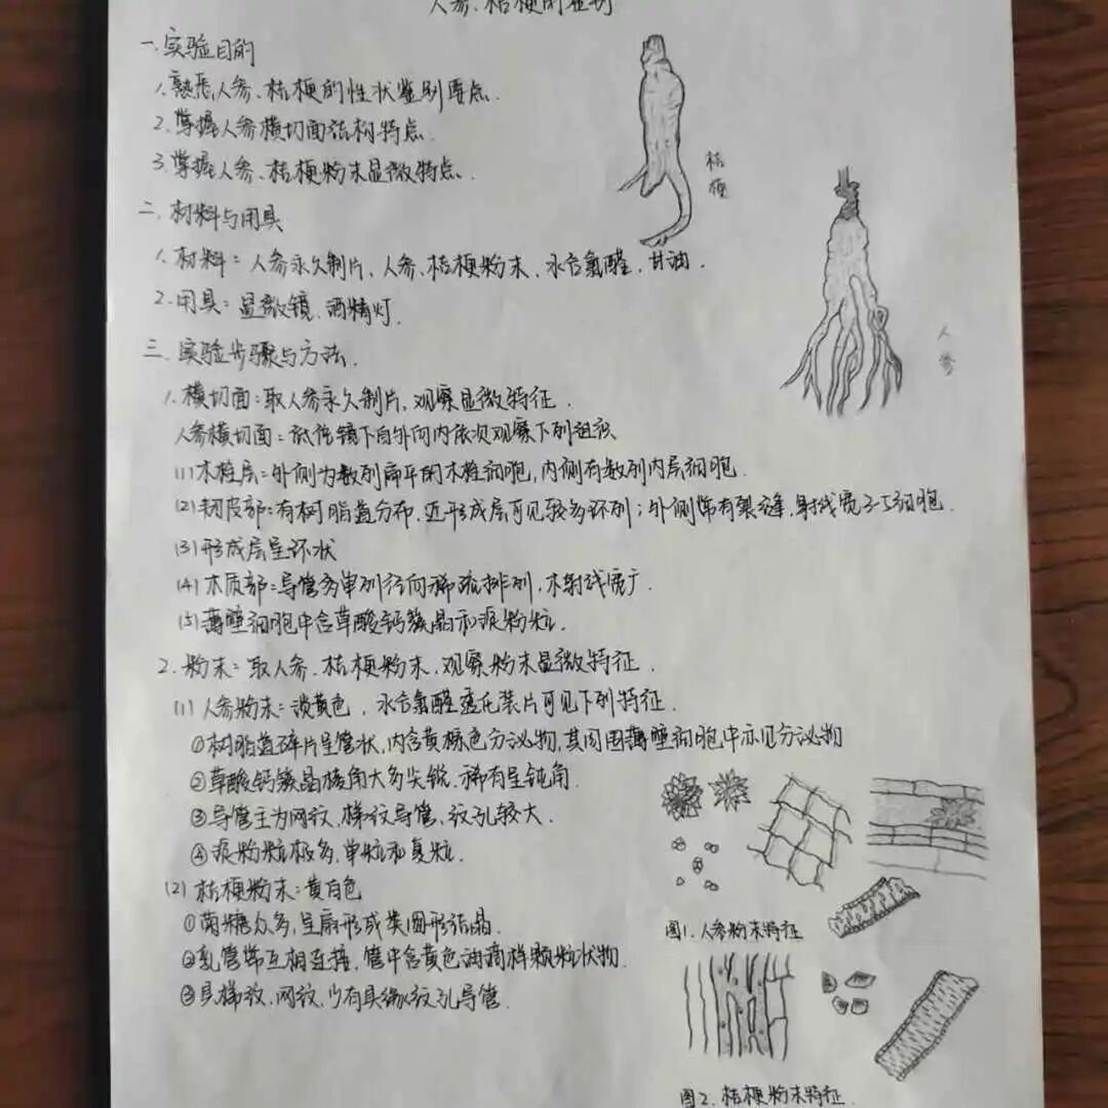 人参、桔梗的鉴别
一、实验目的
1、熟悉人参、桔梗的性状鉴别要点.
2、掌握人参横切面结构特点.
3、掌握人参、桔梗粉末显微特点.
二、材料与用具
1、材料：人参永久制片、人参、桔梗粉末、水合氯醛、甘油.
2、用具：显微镜、酒精灯.
三、实验步骤与方法.
1、横切面：取人参永久制片，观察显微特征.
人参横切面：低倍镜下自外向内依次观察下列组织
(1)木栓层：外侧为数列扁平的木栓细胞，内侧有数列内层细胞.
(2)韧皮部：有树脂道分布，近形成层可见较多环列；外侧常有裂缝，射线宽3-5细胞.
(3)形成层呈环状
(4)木质部：导管多单列径向稀疏排列，木射线宽广.
(5)薄壁细胞中含草酸钙簇晶和淀粉粒.
2、粉末：取人参、桔梗粉末，观察粉末显微特征.
(1)人参粉末：淡黄色，水合氯醛透化装片可见下列特征.
①树脂道碎片呈管状，内含黄棕色分泌物，其周围薄壁细胞中亦见分泌物
②草酸钙簇晶棱角大多尖锐，稀有呈钝角.
③导管主为网纹、梯纹导管，纹孔较大.
④淀粉粒极多，单粒和复粒.
(2)桔梗粉末：黄白色
①菊糖众多，呈扇形或类圆形结晶.
②乳管常互相连接，管中含黄色油滴样颗粒状物.
③具梯纹、网纹，少有具缘纹孔导管.
桔梗
人参
图1.人参粉末特征
图2.桔梗粉末特征.